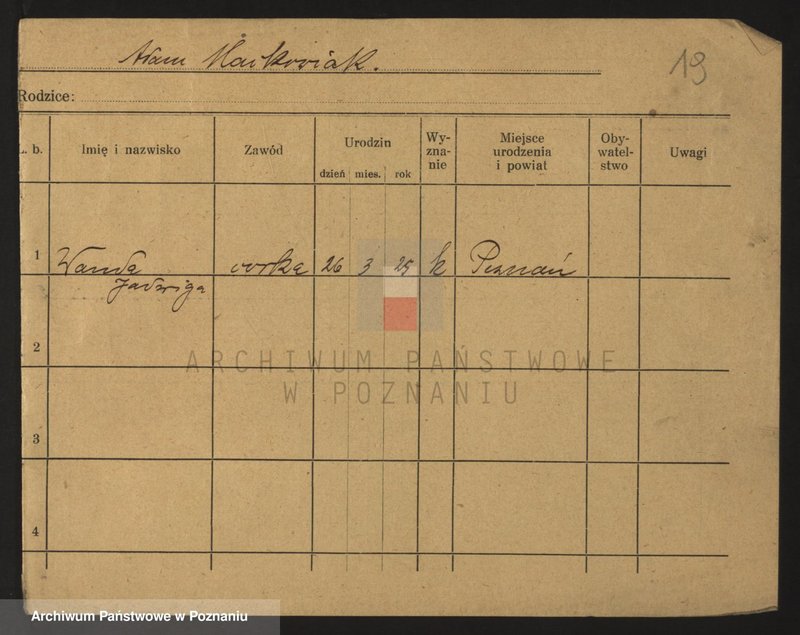 Adam Markowiak.
19
Rodzice:
L. b. Imię i nazwisko Zawód Urodzin dzień mies. rok Wy-zna-nie Miejsce urodzenia i powiat Oby-watel-stwo Uwagi
1 Wanda córka 26 3 25 k Poznań
Jadwiga
2
ARCHIWUM PAŃSTWOWE
W POZNANIU
3
4
Archiwum Państwowe w Poznaniu